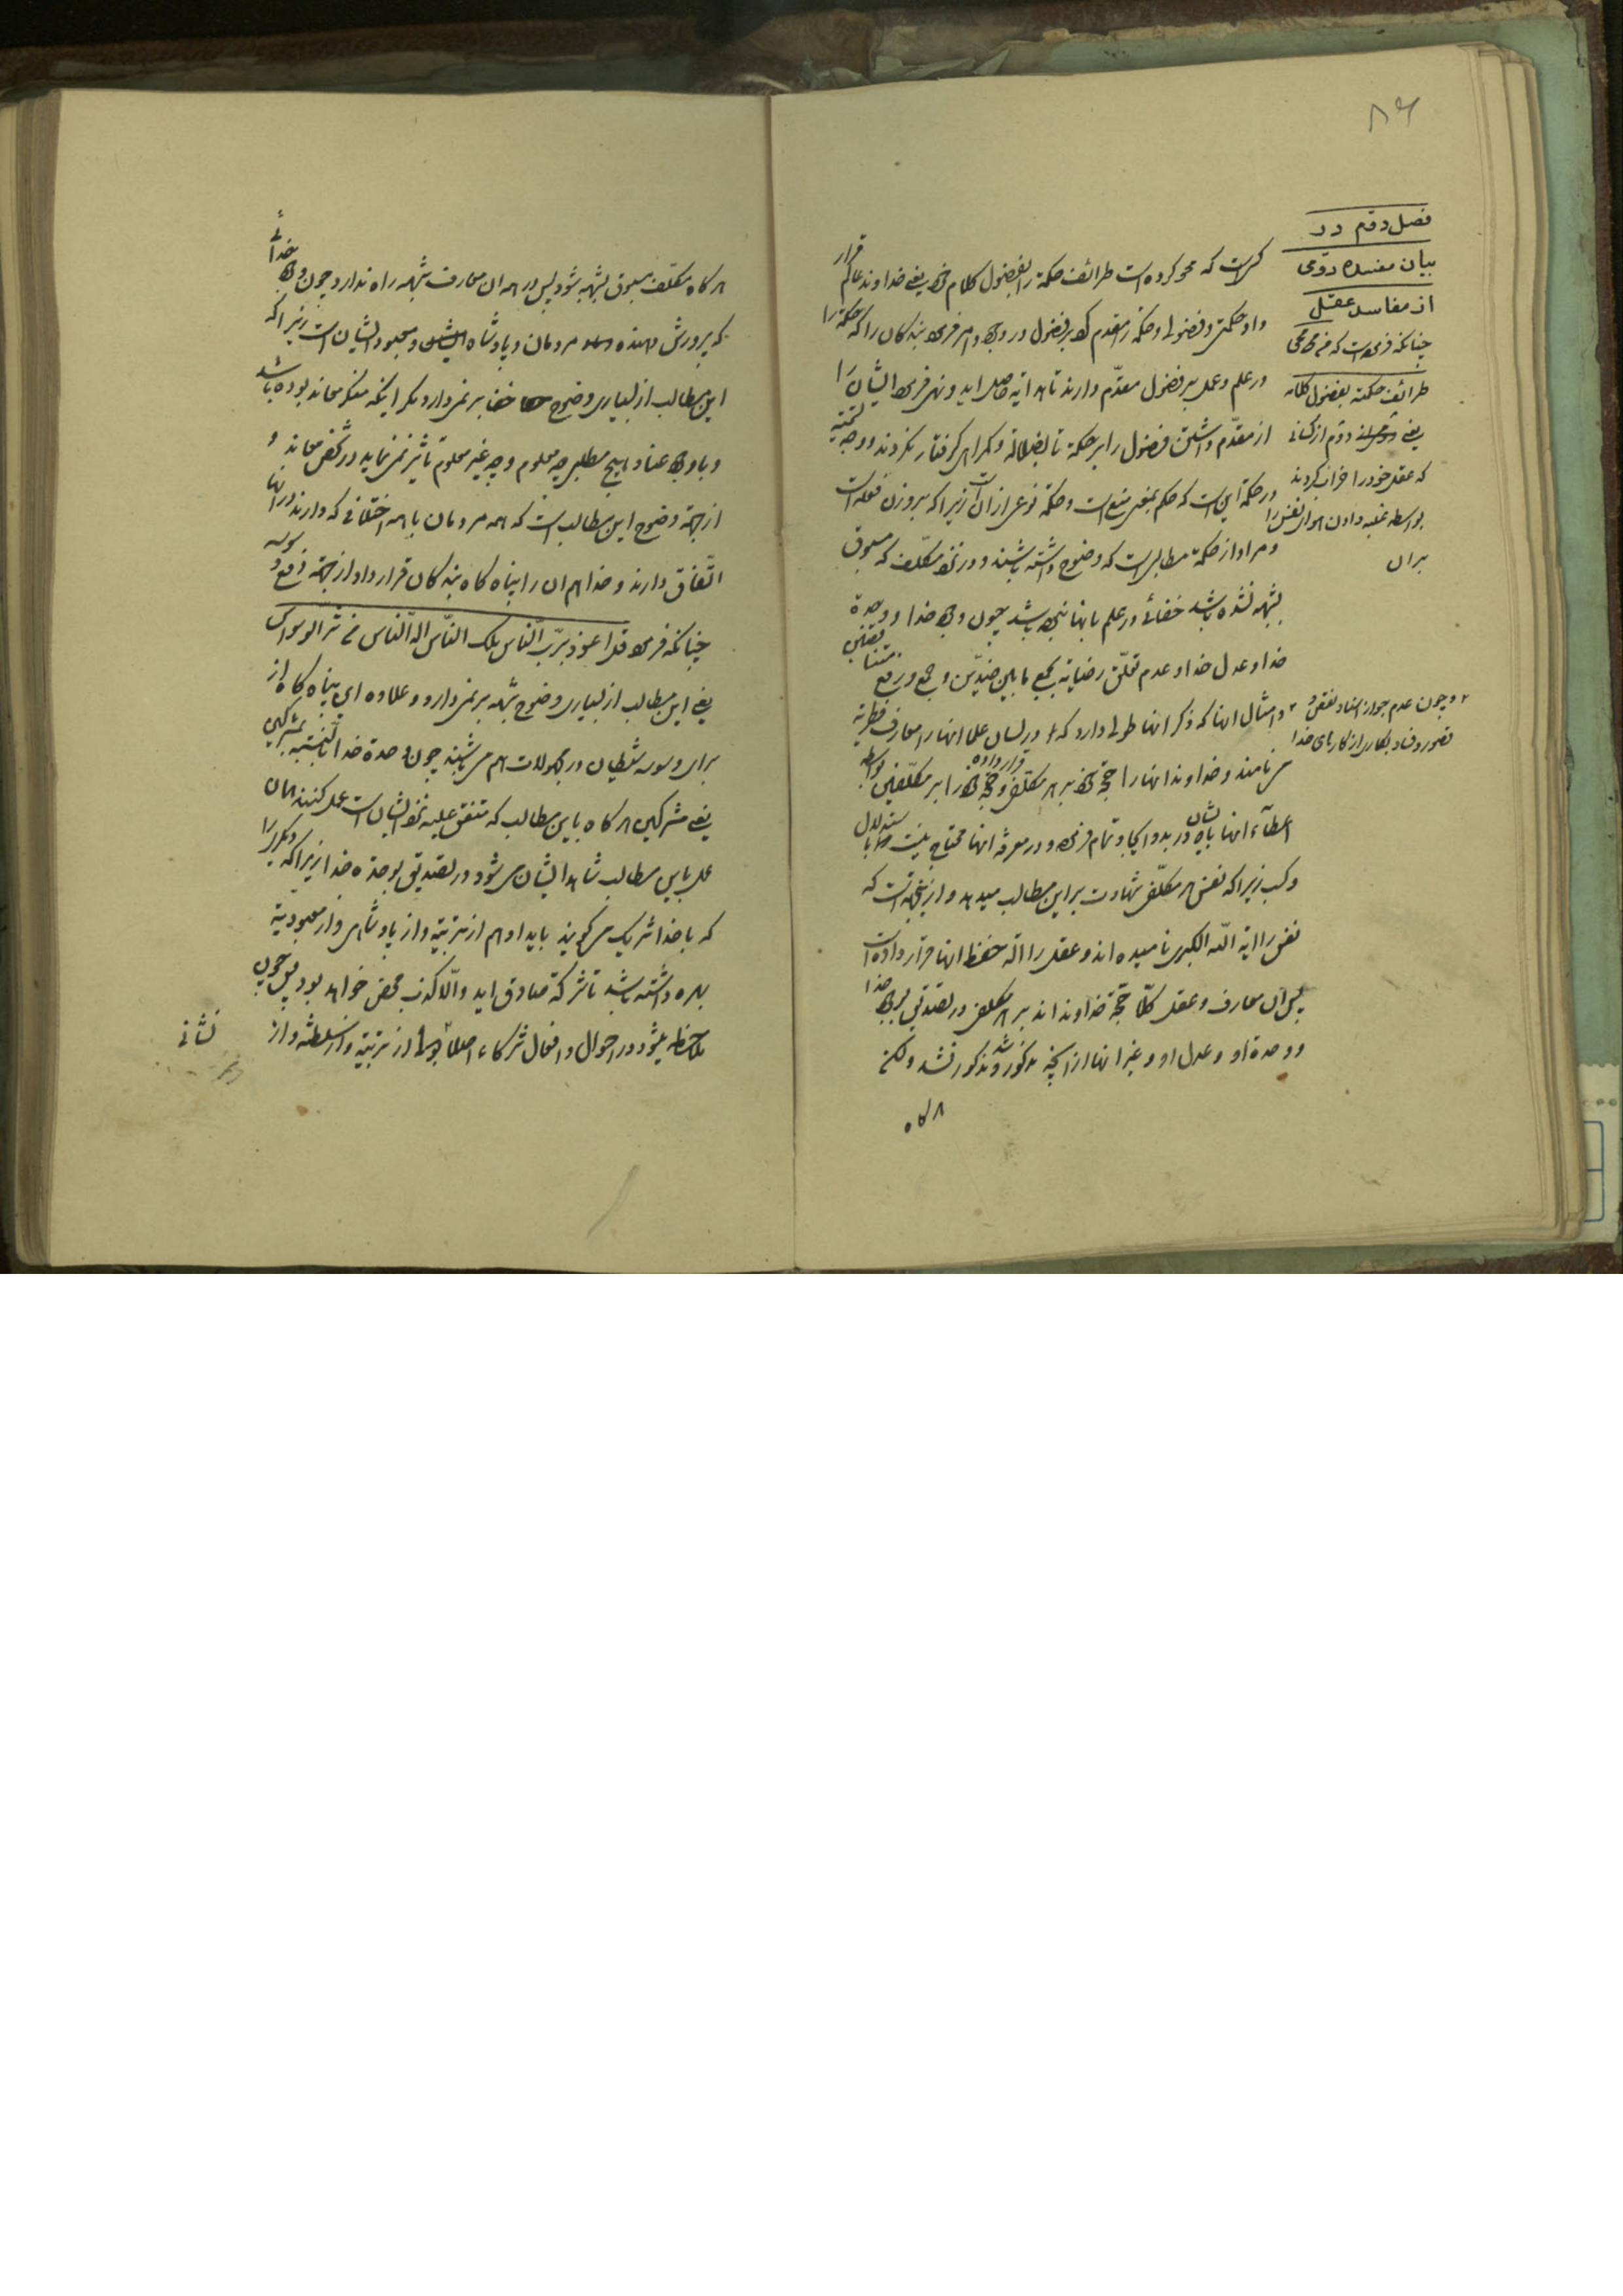 ۸۶
فصل دوّم در
بیان مفسده دوّمی
از مفاسد عقل
چنانکه فرموده است که من محی
طرائف حکمته بفضول کلامه
یعنی دوّم از کسانی
که عقل خود را خراب کردند
بواسطه غلبه دادن هوای نفس را
بران
کسی است که محو کرده است طرائف حکمة را بفضول کلام خود یعنی خداوند عالم قرار
داد حکمتی و فضولی و حکمة را مقدم کرد بر فضول در وجود و امر فرموده بندکان را که حکمة را
در علم و عمل بر فضول مقدّم دارند تا هدایة حاصل اید و نهی فرمود ایشان را
از مقدّم داشتن فضول را بر حکمة تا بضلالة و کمراهی کرفتار نکردند و وجه تسمیه
در حکمة این است که حکم بمعنی منع است و حکمة نوعی از ان است زیرا که بر وزن فعلة است
و مراد از حکمة مطالبی است که وضوح داشته باشند و در نزد مکلّف که مسبوق
بشبهه نشده باشد خفائی در علم بانها نبوده باشد چون وجود خدا و وحدة
خدا و عدل خدا و عدم تعلّق رضایة بجمع ما بین ضدّین و جمع و رفع نقیضین
و امثال اینها که ذکر انها طولی دارد که در لسان علما انها را معارف فطریّه
و چون عدم جواز اسناد نقص و
قصور و فساد بکاری از کارهای خدا
می نامند و خداوند انها را حجّة خود بر هر مکلّف قرار داده و حجّة خود را بر مکلّفین بواسطه
اعطاء انها بایشان در بدو ایجاد تمام فرموده و در معرفة انها محتاج نیست باستدلال
و کسب زیرا که نفس هر مکلّف شهادت بر این مطالب میدهد و از اینجهة است که
نفس را ایة اللّه الکبری نامیده اند و عقل را الة حفظ انها قرار داده است
پس ان معارف و عقل کلّا حجّة خداوند اند بر هر مکلّف در تصدیق بوجود خدا
و وحدة او و عدل او و غیر انها از انچه مذکور شد و مذکور نشد ولکن
هرکاه
هرکاه مکلّف مسبوق بشبهه شود پس در همه ان معارف شبهه راه ندارد چون وجود خدائی
که پرورش دهنده مردمان و پادشاه ایشان و معبود ایشان است زیرا که
این مطالب از بسیاری وضوح خفا بر نمی دارد مکر اینکه منکر معاند بوده باشد
و با وجود عناد هیچ مطلبی چه معلوم و چه غیر معلوم تاثیر نمی نماید در شخص معاند و
از جهة وضوح این مطالب است که همه مردمان با همه اختلافی که دارند در انها
اتّفاق دارند و خدا هم ان را پناه کاه بندکان قرار داد از جهة دفع وسوسه
چنانکه فرموده قل اعوذ بربّ النّاس ملک النّاس اله النّاس من شرّ الوسواس
یعنی این مطالب از بسیاری وضوح شبهه بر نمی دارد و علاوه ای پناه کاه از
برای وسوسه شیطان در مجهولات هم می باشند چون وحدة خدا بالنّسبة بمشرکین
یعنی مشرکین هرکاه باین مطالب که متفق علیه نزد ایشان است عمل کنند همان
عمل باین مطالب شاهد ایشان می شود در تصدیق بوحدة خدا زیرا که دیکری را
که با خدا شریک می کویند باید او هم از تربیة و از پادشاهی و از معبودیة
بهره داشته باشد تا شرکة صادق اید و الّا کذب محض خواهد بود پس چون
ملاحظه بشود در احوال و افعال شرکاء اصلاً از تربیة و از سلطنة و از
نشانی